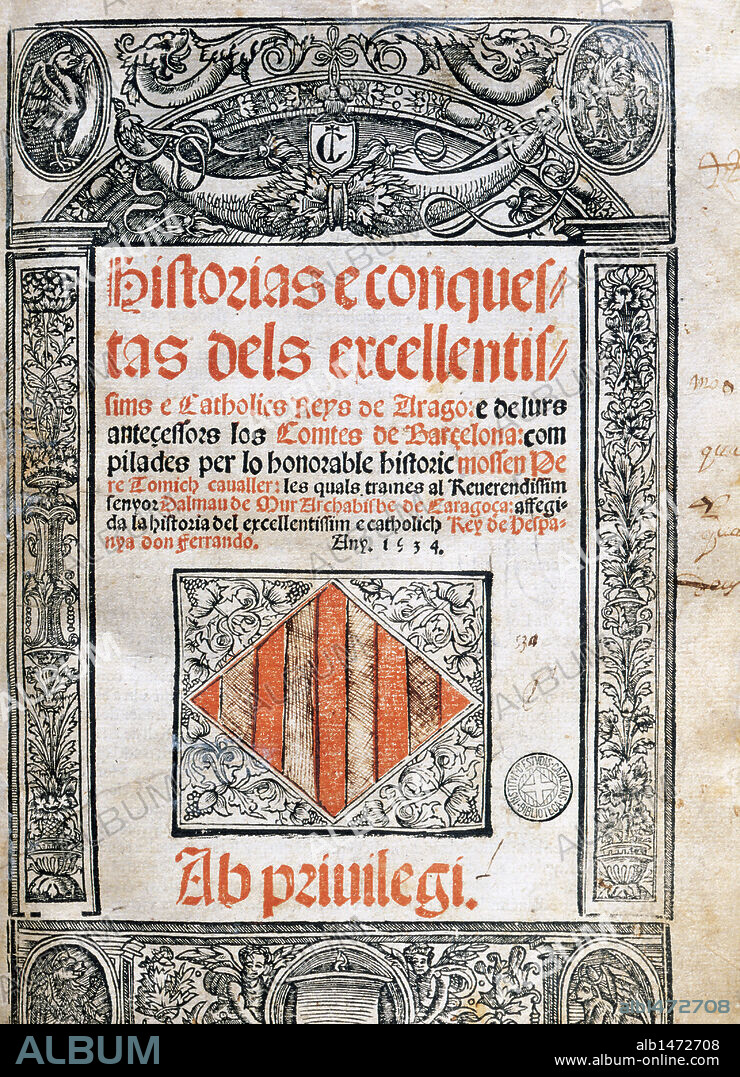 C
Historias e conques⸗
tas dels excellentis⸗
sims e Catholics Reys de Arago: e de lurs
anteçessors los Comtes de Barçelona: com
pilades per lo honorable historic mossen Pe
re Tomich caualler: les quals trames al Reuerendissim
senyor Dalmau de Mur Archabisbe de Caragoça: affegi⸗
da la historia del excellentissim e catholich Rey de Hespa⸗
nya don Ferrando. Any. 1534.
534
Ab priuilegi.
ALBUM
alb1472708
alb1472708
www.album-online.com